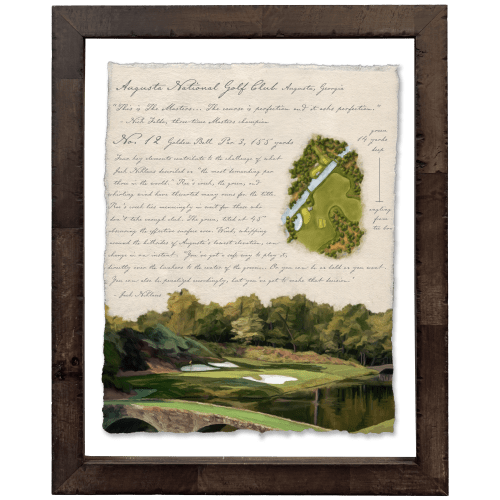 Augusta National Golf Club Augusta, Georgia
"This is The Masters... The course is perfection and it asks perfection."
- Nick Faldo, three-time Masters champion
No. 12 Golden Bell Par 3, 155 yards
Four key elements contribute to the challenge of what
Jack Nicklaus described as "the most demanding par
three in the world." Rae's creek, the green, and
whirling wind have thwarted many vies for the title.
Rae's creek lies menacingly in wait for those who
don't take enough club. The green, tilted at 45°
shortening the effective surface area. Wind, whipping
around the hillsides of Augusta's lowest elevation, can
change in an instant. "You've got a safe way to play it,
directly over the bunkers to the center of the greens. Or you can be as bold as you want.
You can also be penalized accordingly, but you've got to make that decision."
- Jack Nicklaus
green
14 yards
deep
angling
from
tee box